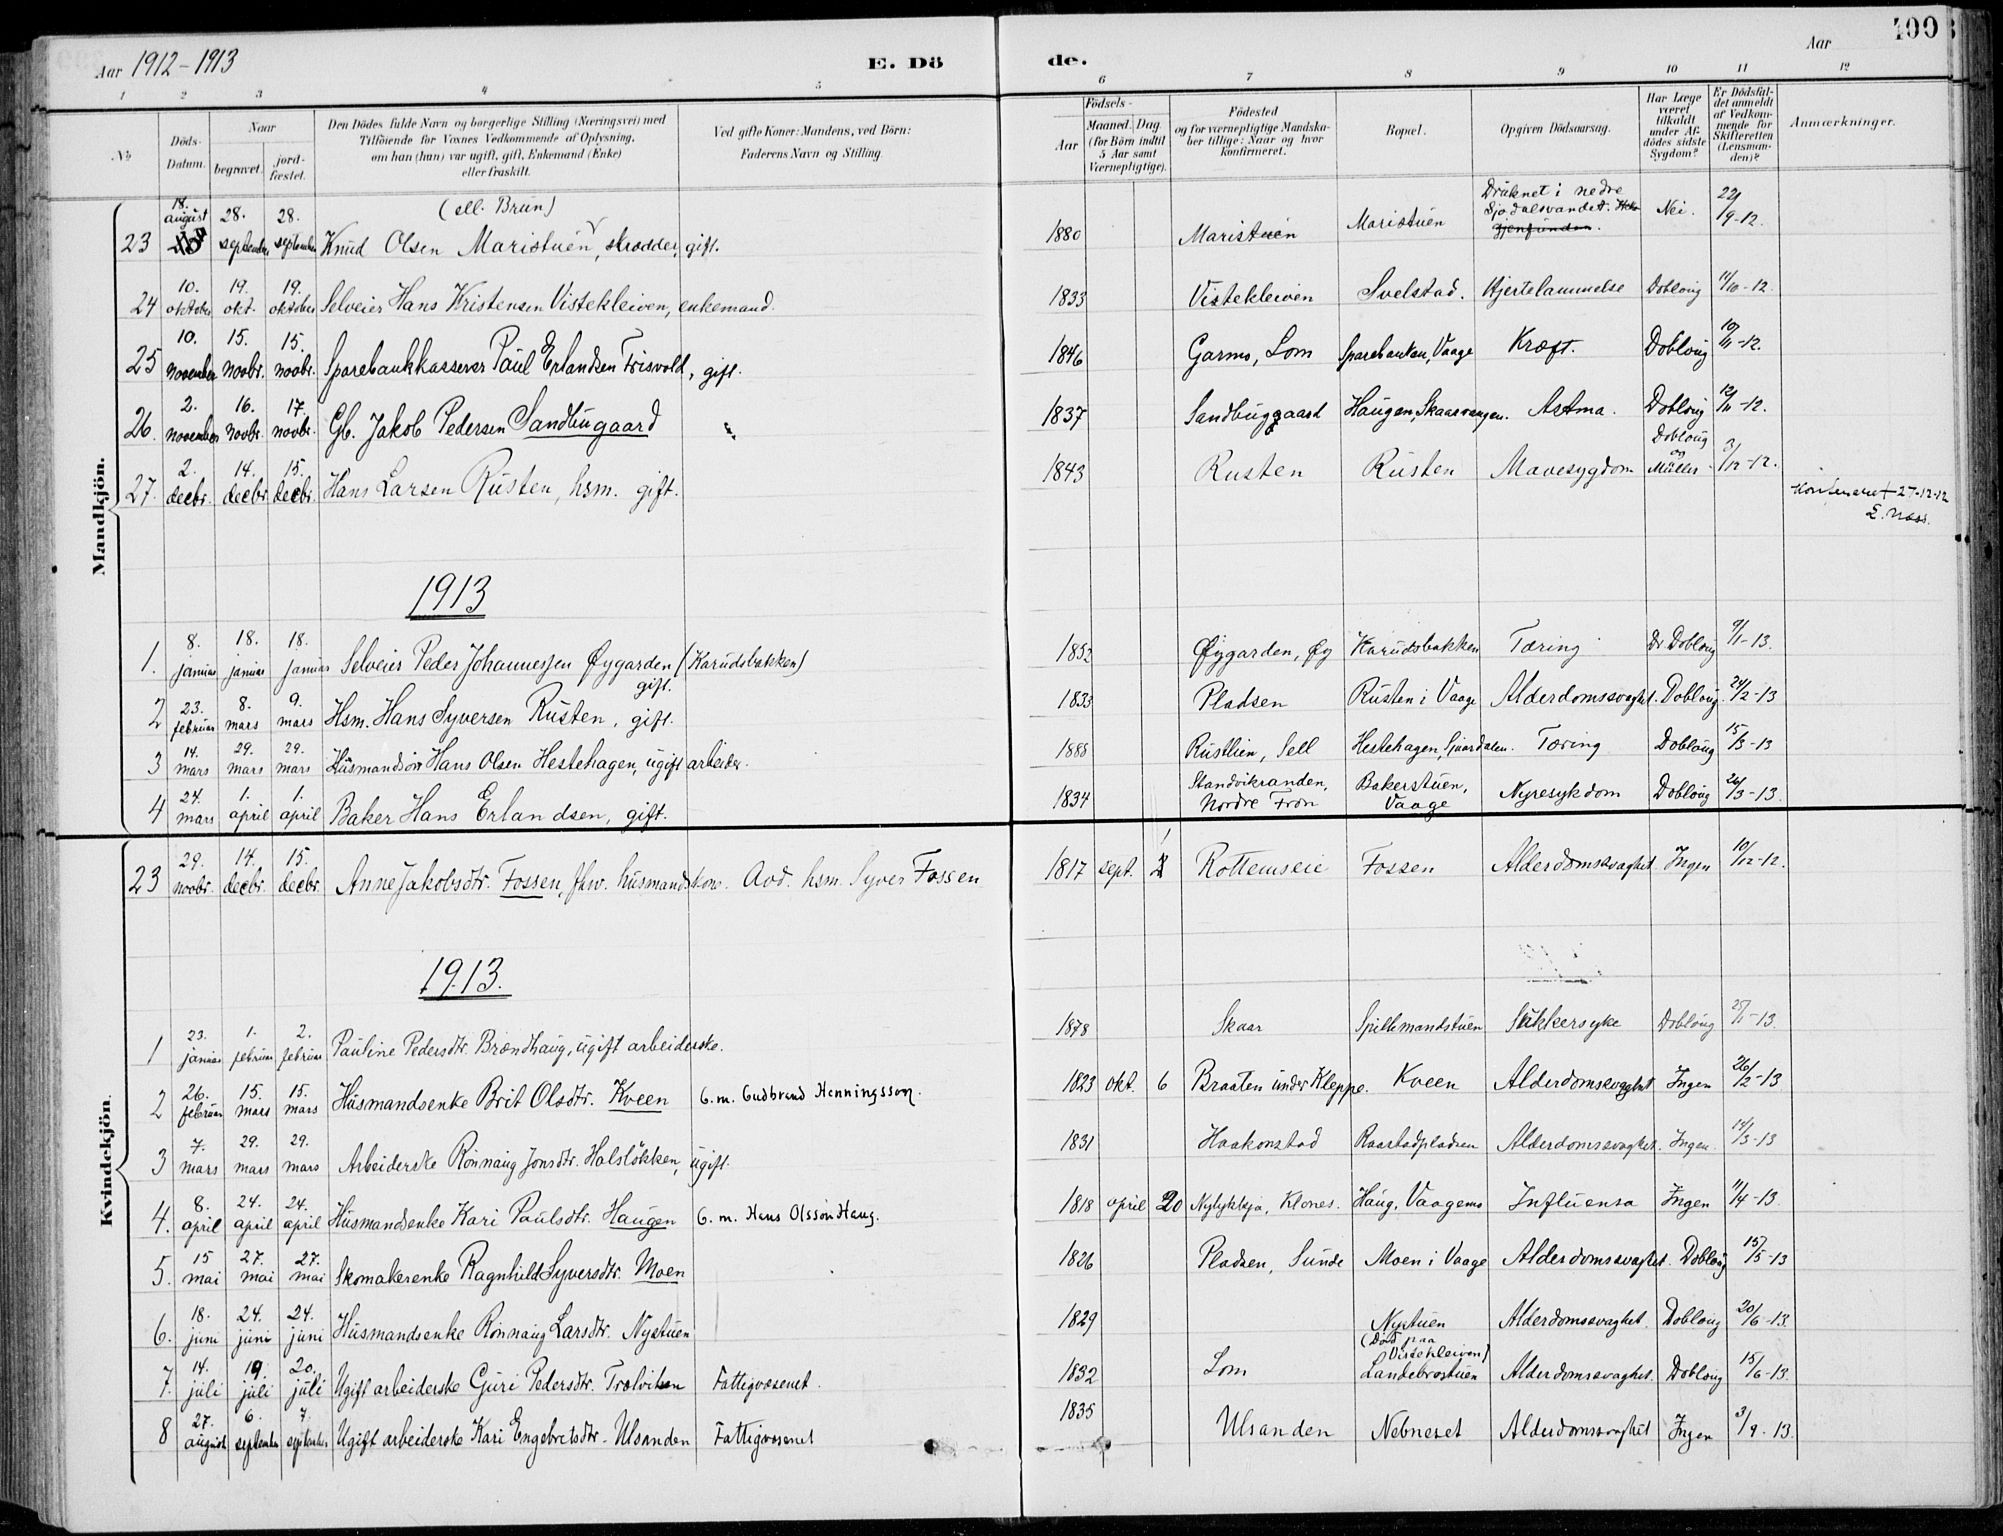 Aar 1912-1913 E. Dö de. Aar 400
1 2 3 4 5 6 7 8 9 10 11 12
№ Döds-Datum. Naar begravet. jordfæstet. Den Dödes fulde Navn og borgerlige Stilling (Næringsvei) med Tilföiende for Voxnes Vedkommende af Oplysning, om han (hun) var ugift, gift, Enkemand (Enke) eller fraskilt. Ved gifte Koner: Mandens, ved Börn: Faderens Navn og Stilling.
Födsels- Aar Maaned. Dag. (for Börn indtil 5 Aar samt Værnepligtige). Födested og for værnepligtige Mandskaber tillige: Naar og hvor konfirmeret. Bopæl. Opgiven Dödsaarsag. Har Læge været tilkaldt under Afdödes sidste Sygdom? Er Dödsfaldet anmeldt af Vedkommende for Skifteretten (Lensmanden)? Anmærkninger.
Mandkjön.
23 18. august 28. september 28. september Knud Olsen Maristuen (ell. Brun), skrædder, gift. 1880 Maristuen Maristuen Druknet i nedre Sjodalsvandet. Nei. 22/9-12.
24 10. oktober 19. okt. 19. oktober Selveier Hans Kristensen Vistekleiven, enkemand. 1833 Vistekleiven Svelstad. Hjertelammelse Dobloug 11/10-12.
25 10. november 15. novbr. 15. novbr. Sparebankkasserer Paul Erlandsen Trisvold, gift. 1846 Garmo, Lom Sparebanken, Vaage Kræft. Dobloug 10/11-12.
26. 2. november 16. novbr. 17. novbr. Gb. Jakob Pedersen Sandbugaard 1837 Sandbuggaard Haugen, Skaarvangen. Astma. Dobloug 12/11-12.
27. 2. decbr. 14. decbr. 15. decbr. Hans Larsen Rusten, hsm. gift. 1843 Rusten Rusten Mavesygdom Dobloug og Müller 3/12-12.
27-12-12
E. Næss.
1913
1. 8. januar 18. januar 18. januar Selveier Peder Johannessen Øygarden (Karudsbakken) gift. 1852 Øygarden, Øy Karudsbakken Tæring Dr Dobloug 9/1-13.
2 23. februar 8. mars 9. mars Hsm. Hans Syversen Rusten, gift. 1833 Pladsen Rusten i Vaage Alderdomssvaghet. Dobloug. 24/2-13
3 14. mars 29. mars 29. mars Husmandsøn Hans Olsen Hestehagen, ugift arbeider. 1888 Rustlien, Sell Hestehagen, Sjaardalen. Tæring Dobloug 15/3-13
4 24. mars 1. april 1. april Baker Hans Erlandsen, gift. 1834 Standvikranden, Nordre Fron Bakerstuen, Vaage Nyresykdom Dobloug 26/3-13.
Kvindekjön.
23 29. novbr. 14. decbr. 15. decbr. Anne Jakobsdtr. Fossen, fhv. husmandskone. Avd. hsm. Syver Fossen 1817 sept. 1 Rottemseie Fossen Alderdomssvaghet Ingen 10/12-12.
1913.
1 23. januar 1. februar 2. februar Pauline Pedersdtr. Brændhaug, ugift arbeiderske. 1878 Skaar Spillemandstuen Sukkersyke Dobloug 25/1-13.
2 26. februar 15. mars 15. mars Husmandsenke Brit Olsdtr. Kveen G. m. Gudbrand Henningsson. 1823 okt. 6 Braaten under Kleppe. Kveen Alderdomssvaghet Ingen 26/2-13
3 7. mars 29. mars 29. mars Arbeiderske Rønnaug Jonsdtr. Halsløkken, ugift. 1831 Haakonstad Raastadpladsen Alderdomssvaghet. Ingen. 14/3-13
4. 8. april 24. april 24. april Husmandsenke Kari Paulsdtr. Haugen G. m. Hans Olsson Haug. 1818 april 20 Nylykkja, Klones. Haug, Vaagemo Influensa Ingen 11/4-13.
5. 15 mai 27. mai 27. mai Skomakerenke Ragnhild Syversdtr. Moen 1826 Pladsen, Sunde Moen i Vaage Alderdomssvaghet. Dobloug 15/5-13
6. 18. juni 24. juni 24. juni Husmandsenke Rønnaug Larsdtr. Nystuen 1829 Nystuen (Død paa Vistekleiven) Alderdomssvaghet. Dobloug 20/6-13.
7. 14. juli 19. juli 20. juli Ugift arbeiderske Guri Pedersdtr. Trælviken Fattigvæsenet. 1832 Lom Landebrostuen Alderdomssvaghet. Dobloug 15/6-13.
8 27. august 6. september 7. september Ugift arbeiderske Kari Engebretsdtr. Ulsanden Fattigvæsenet 1835 Ulsanden Nebneset Alderdomssvaghet Ingen 3/9-13.